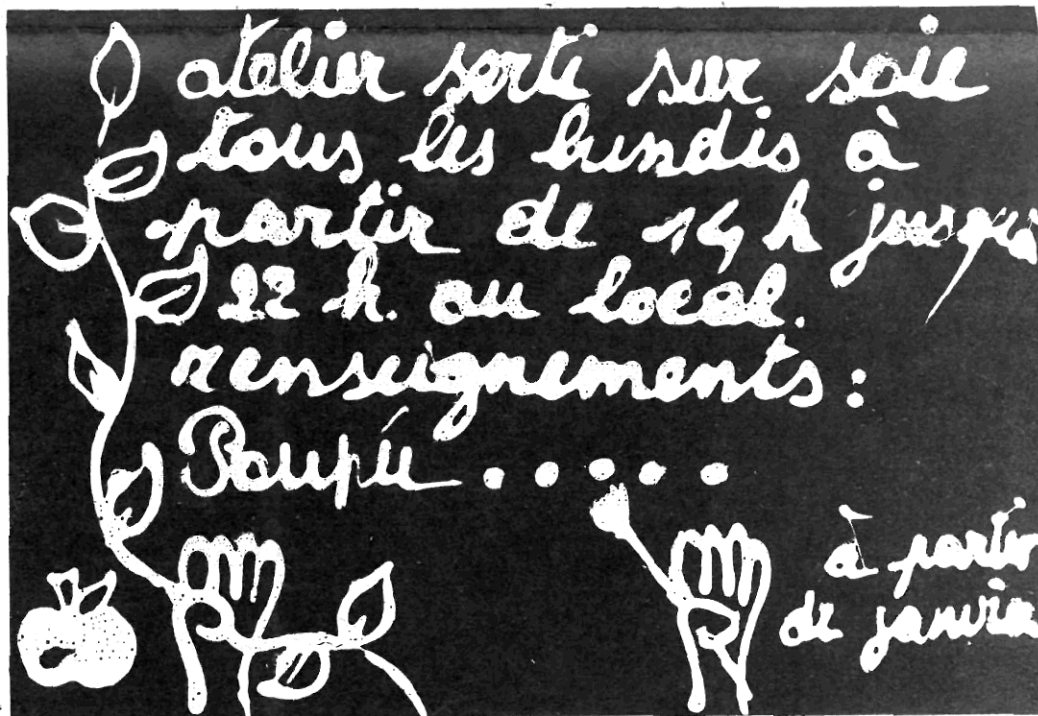 atelier serti sur soie
tous les lundis à
partir de 14 h jusqu'à
22 h. au local.
renseignements :
Poupée . . . . .
à partir
de janvier